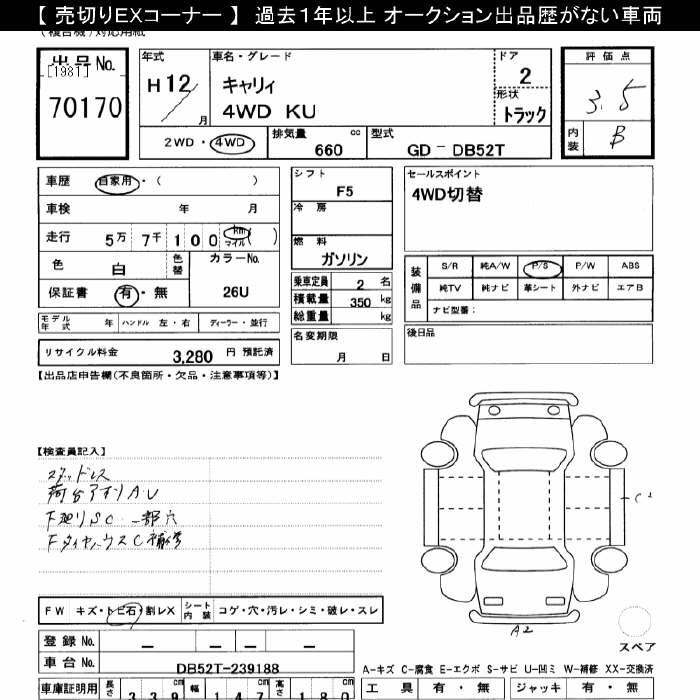 【 売切りEXコーナー 】 過去1年以上 オークション出品歴がない車両
(複合機)対応用紙
出品No.
[1981]
70170
年式
H 12/
月
車名・グレード
キャリィ
4WD KU
ドア
2
形状
トラック
評価点
3.5
内装
B
2WD・4WD
排気量
cc
660
型式
GD - DB52T
車歴
自家用・( )
車検
年 月
走行
5万 7千 100 km マイル ( )
色
白
色替
カラーNo.
26U
保証書
有・無
シフト
F5
冷房
燃料
ガソリン
乗車定員 2 名
積載量 350 kg
総重量 kg
名変期限
月 日
セールスポイント
4WD切替
装備品
S/R 純A/W P/S P/W ABS
純TV 純ナビ 革シート 外ナビ エアB
ナビ型番:
後日品
モデル年式 年 ハンドル 左・右 ディーラー・並行
リサイクル料金 3,280 円 預託済
【出品店申告欄(不良箇所・欠品・注意事項等)】
【検査員記入】
荷台アオリA.U
F廻りSC 一部穴
FタイヤハウスC補修
C2
A2
スペア
FW キズ・トビ石・割レX
シート内装 コゲ・穴・汚レ・シミ・破レ・スレ
登録No. － － － －
車台No. DB52T-239188
A-キズ C-腐食 E-エクボ S-サビ U-凹ミ W-補修 XX-交換済
車庫証明用 長さ 339 cm 幅 147 cm 高さ 180 cm
工具 有・無 ジャッキ 有・無